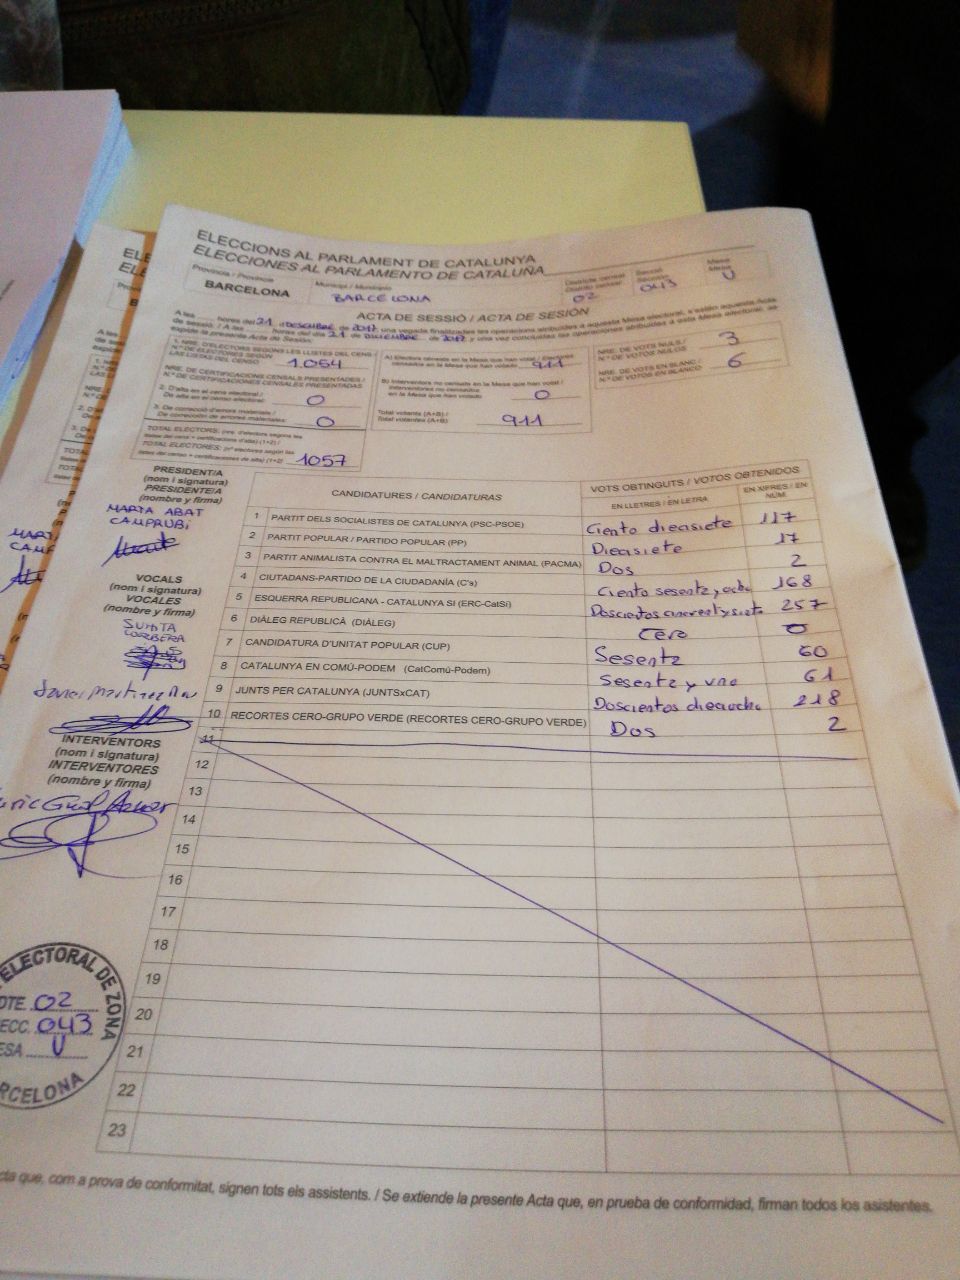 ELECCIONS AL PARLAMENT DE CATALUNYA
ELECCIONES AL PARLAMENTO DE CATALUÑA
Província / Provincia
BARCELONA
Municipi / Municipio
BARCELONA
Districte censal
Distrito censal
02
Secció
Sección
043
Mesa
Mesa
U
ACTA DE SESSIÓ / ACTA DE SESIÓN
A les ..... hores del 21 d DESEMBRE de 2017, una vegada finalitzades les operacions atribuïdes a aquesta Mesa electoral, s'estén aquesta Acta
de sessió. / A las ..... horas del día 21 de DICIEMBRE de 2017 y una vez concluidas las operaciones atribuidas a esta Mesa electoral, se
expide la presente Acta de Sesión.
1. NRE. D'ELECTORS SEGONS LES LLISTES DEL CENS /
N.º DE ELECTORES SEGÚN
LAS LISTAS DEL CENSO
1.064
NRE. DE CERTIFICACIONS CENSALS PRESENTADES /
N.º DE CERTIFICACIONES CENSALES PRESENTADAS
2. D'alta en el cens electoral /
De alta en el censo electoral:
0
3. De correcció d'errors materials /
De corrección de errores materiales:
0
TOTAL ELECTORS: (nre. d'electors segons les
llistes del cens + certificacions d'alta) (1+2) /
TOTAL ELECTORES: (nº electores según las
listas del censo + certificaciones de alta) (1+2)
1057
A) Electors censats en la Mesa que han votat / Electores
censados en la Mesa que han votado
911
B) Interventors no censats en la Mesa que han votat /
Interventores no censados
en la Mesa que han votado
0
Total votants (A+B) /
Total votantes (A+B):
911
NRE. DE VOTS NULS /
N.º DE VOTOS NULOS
3
NRE. DE VOTS EN BLANC /
N.º DE VOTOS EN BLANCO
6
PRESIDENT/A
(nom i signatura)
PRESIDENTE/A
(nombre y firma)
MARTA ABAT
CAMPRUBÍ
VOCALS
(nom i signatura)
VOCALES
(nombre y firma)
INTERVENTORS
(nom i signatura)
INTERVENTORES
(nombre y firma)
CANDIDATURES / CANDIDATURAS
VOTS OBTINGUTS / VOTOS OBTENIDOS
EN LLETRES / EN LETRA
EN XIFRES / EN NÚM.
1 PARTIT DELS SOCIALISTES DE CATALUNYA (PSC-PSOE) Ciento dieasiete 117
2 PARTIT POPULAR / PARTIDO POPULAR (PP) Dieasiete 17
3 PARTIT ANIMALISTA CONTRA EL MALTRACTAMENT ANIMAL (PACMA) Dos 2
4 CIUTADANS-PARTIDO DE LA CIUDADANÍA (C's) Ciento sesenta y ocho 168
5 ESQUERRA REPUBLICANA - CATALUNYA SI (ERC-CatSí) Doscientos cincuenta y siete 257
6 DIÀLEG REPUBLICÀ (DIÀLEG) Cero 0
7 CANDIDATURA D'UNITAT POPULAR (CUP) Sesenta 60
8 CATALUNYA EN COMÚ-PODEM (CatComú-Podem) Sesenta y uno 61
9 JUNTS PER CATALUNYA (JUNTSxCAT) Doscientos dieciocho 218
10 RECORTES CERO-GRUPO VERDE (RECORTES CERO-GRUPO VERDE) Dos 2
11
12
13
14
15
16
17
18
19
20
21
22
23
ELECTORAL DE ZONA
DTE. 02
SECC. 043
MESA U
BARCELONA
Acta que, com a prova de conformitat, signen tots els assistents. / Se extiende la presente Acta que, en prueba de conformidad, firman todos los asistentes.